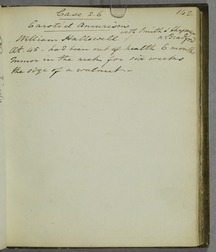 Case 26 142
Carotid Aneurism with Smith &
William Hallowell
At. 45. had been out of health 6 months
Tumor in the neck for six weeks
the size of a walnut.